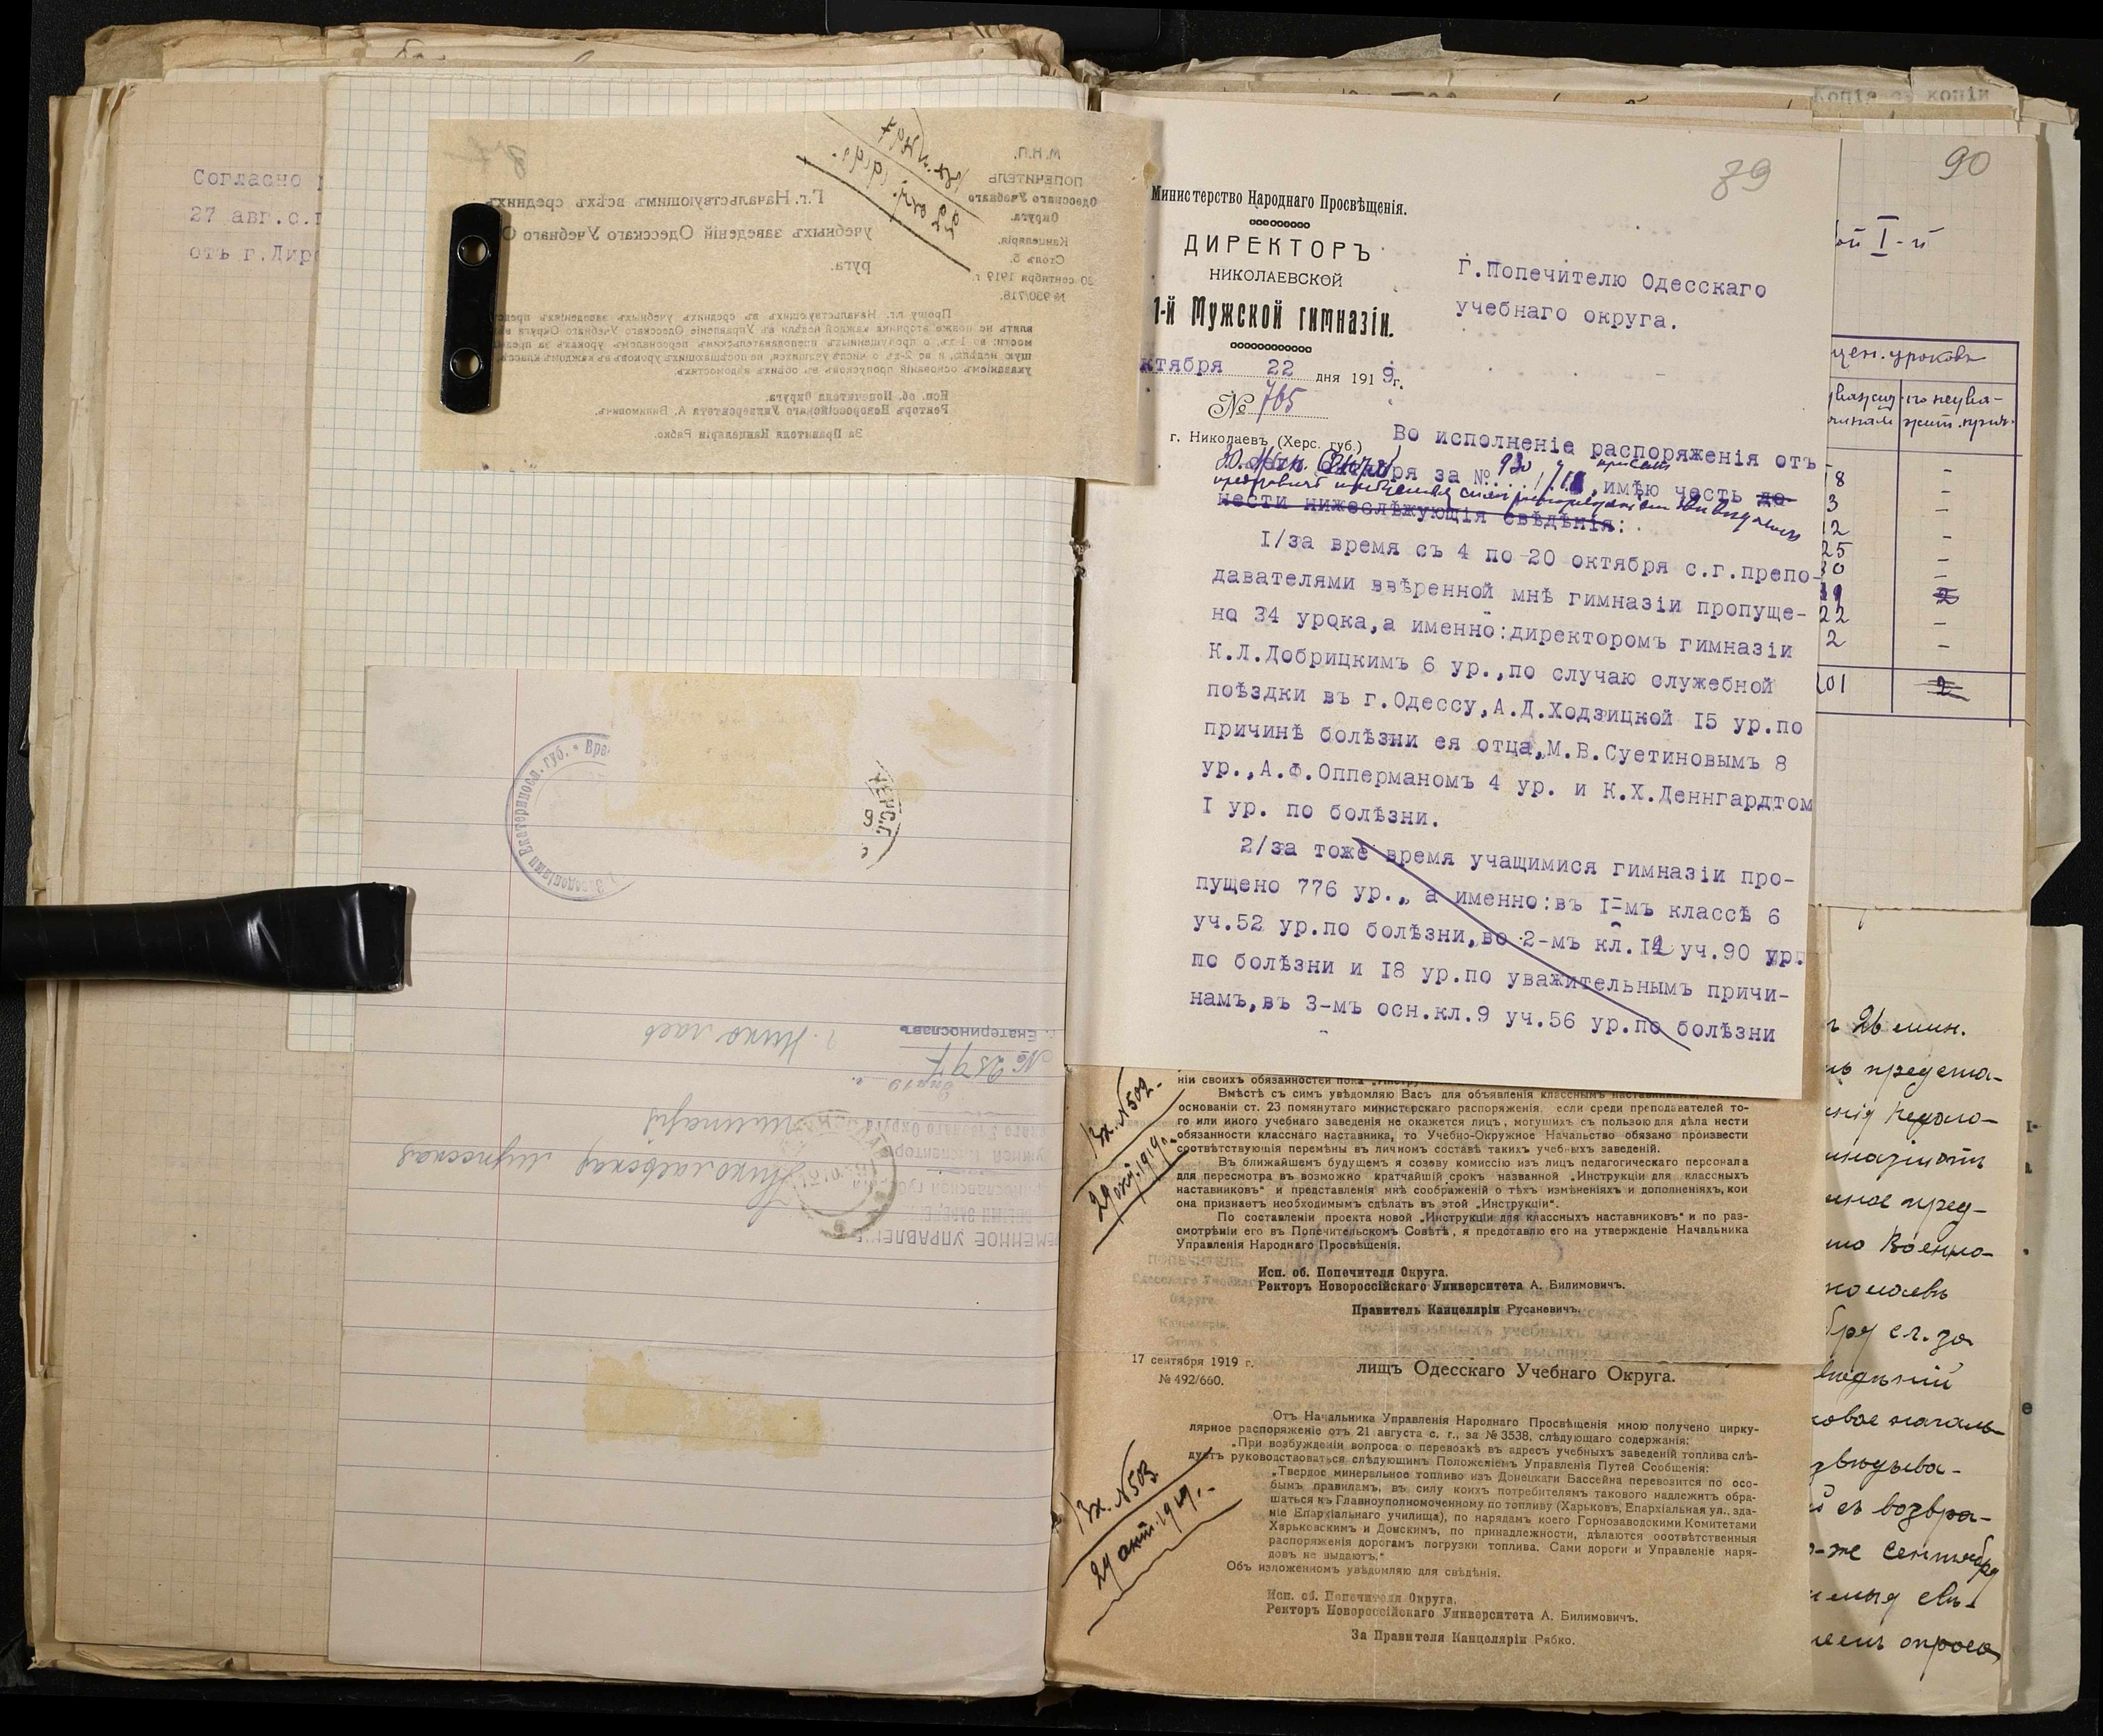 Согласно
27 авг.с.г
отъ г.Дир
М.Н.П.
ПОПЕЧИТЕЛЬ
Одесскаго Учебнаго
Округа.
Канцелярія.
Столъ 5.
30 сентября 1919 г.
№ 930/718.
Вх. №497
22 окт. 1919.
Г.г. Начальствующимъ всѣхъ среднихъ
учебныхъ заведеній Одесскаго Учебнаго О
руга.
Прошу г.г. Начальствующихъ въ среднихъ учебныхъ заведеніяхъ предст
влять не позже вторника каждой недѣли въ Управленіе Одесскаго Округа вѣ
мости: во 1-хъ, о пропущенныхъ преподавательскимъ персоналомъ урокахъ за пред
щую недѣлю, и во 2-хъ, о числѣ учащихся, не посѣщающихъ уроковъ въ каждомъ классѣ
указаніемъ основаній пропусковъ въ обѣихъ вѣдомостяхъ.
Исп. об. Попечителя Округа.
Ректоръ Новороссійскаго Университета А. Билимовичъ.
За Правителя Канцеляріи Рябко.
Екатеринославъ
№ 2597
г. Николаев
Николаевская мужская
гимназія
МЕННОЕ УПРАВЛЕН
Екатеринослав. губ.
ХЕРС.Г.
89
Министерство Народнаго Просвѣщенія.
ДИРЕКТОРЪ
НИКОЛАЕВСКОЙ
1-й Мужской гимназіи.
ктября 22 дня 1919г.
№ 765
г. Николаевъ (Херс. губ.)
Г.Попечителю Одесскаго
учебнаго округа.
Во исполненіе распоряженія отъ
30 октября за № 930/718, имѣю честь до-
нести нижеслѣжующія свѣдѣнія:
I/за время съ 4 по 20 октября с.г.препо-
давателями ввѣренной мнѣ гимназіи пропуще-
но 34 урока,а именно:директоромъ гимназіи
К.Л.Добрицкимъ 6 ур.,по случаю служебной
поѣздки въ г.Одессу,А.Д.Ходзицкой I5 ур.по
причинѣ болѣзни ея отца,М.В.Суетиновымъ 8
ур.,А.Ф.Опперманомъ 4 ур. и К.Х.Деннгардтом
I ур. по болѣзни.
2/за тоже время учащимися гимназіи про-
пущено 776 ур., а именно:въ I-мъ классѣ 6
уч.52 ур.по болѣзни,во 2-мъ кл.I2 уч.90 ур.
по болѣзни и I8 ур.по уважительнымъ причи-
намъ,въ 3-мъ осн.кл.9 уч.56 ур.по болѣзни
Копія съ копіи
90
ой I-й
щен. уроковъ
по неува-
жит. прич.
18 -
3 -
12 -
25 -
30 -
19 2
22 -
2 -
201 2
Вх. №502.-
29 окт. 1919г.-
ніи своихъ обязанностей пока „Инстру
Вмѣстѣ съ симъ увѣдомляю Васъ для объявленія класснымъ наставникамъ,
основаніи ст. 23 помянутаго министерскаго распоряженія, если среди преподавателей то-
го или иного учебнаго заведенія не окажется лицъ, могущихъ съ пользою для дѣла нести
обязанности класснаго наставника, то Учебно-Окружное Начальство обязано произвести
соотвѣтствующія перемѣны въ личномъ составѣ такихъ учебныхъ заведеній.
Въ ближайшемъ будущемъ я созову комиссію изъ лицъ педагогическаго персонала
для пересмотра въ возможно кратчайшій срокъ названной „Инструкціи для классныхъ
наставниковъ“ и представленія мнѣ соображеній о тѣхъ измѣненіяхъ и дополненіяхъ, кои
она признаетъ необходимымъ сдѣлать въ этой „Инструкціи“.
По составленіи проекта новой „Инструкціи для классныхъ наставниковъ“ и по раз-
смотрѣніи его въ Попечительскомъ Совѣтѣ, я представлю его на утвержденіе Начальника
Управленія Народнаго Просвѣщенія.
Исп. об. Попечителя Округа.
Ректоръ Новороссійскаго Университета А. Билимовичъ.
Правитель Канцеляріи Русановичъ.
17 сентября 1919 г.
№ 492/660.
лищъ Одесскаго Учебнаго Округа.
Вх. №503.
29 окт. 1919г.-
Отъ Начальника Управленія Народнаго Просвѣщенія мною получено цирку-
лярное распоряженіе отъ 21 августа с. г., за № 3538, слѣдующаго содержанія:
„При возбужденіи вопроса о перевозкѣ въ адресъ учебныхъ заведеній топлива слѣ-
дуетъ руководствоваться слѣдующимъ Положеніемъ Управленія Путей Сообщенія:
„Твердое минеральное топливо изъ Донецкаги Бассейна перевозится по осо-
бымъ правиламъ, въ силу коихъ потребителямъ такового надлежитъ обра-
щаться къ Главноуполномоченному по топливу (Харьковъ, Епархіальная ул., зда-
ніе Епархіальнаго училища), по нарядамъ коего Горнозаводскими Комитетами
Харьковскимъ и Донскимъ, по принадлежности, дѣлаются соотвѣтственныя
распоряженія дорогамъ погрузки топлива. Сами дороги и Управленіе наря-
довъ не выдаютъ.“
Объ изложенномъ увѣдомляю для свѣдѣнія.
Исп. об. Попечителя Округа.
Ректоръ Новороссійскаго Университета А. Билимовичъ.
За Правителя Канцеляріи Рябко.
26 мин.
предста-
педаго-
пред-
Военно-
бря с.г. за
ковое началь-
съ возвра-
же сентябрь
опроса